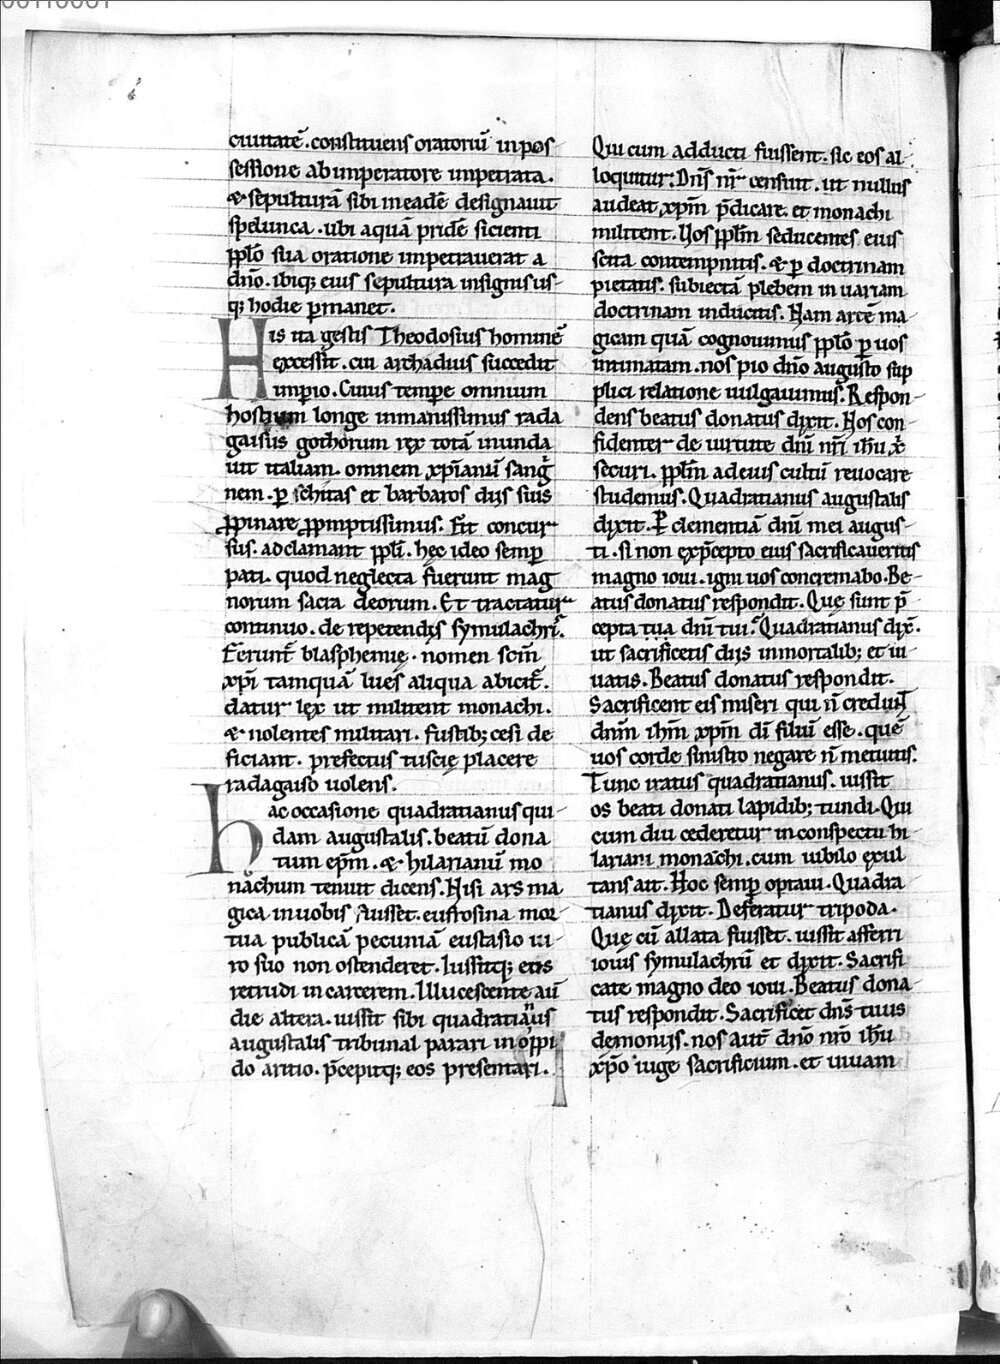 00110061
ciuitatē. constituens oratoriū in pos
sessione ab inperatore inpetrata.
& sepulturā sibi in eadē designauit
spelunca. ubi aquā pridē sicienti
pplo sua oratione inpetrauerat a
dno. ibiq; eius sepultura insignis us-
q; hodie pmanet.
His ita gestis Theodosius hominē
excessit. cui archadius succedit
inpio. Cuius tempe omnium
hostium longe inmanissimus rada
gaisus gothorum rex totā inunda
uit italiam. omnem xp̄ianū sang
nem. p schitas et barbaros diis suis
ppinare pmptissimus. Fit concur
sus. adclamant ppli. hęc ideo semp
pati. quod neglecta fuerunt mag
norum sacra deorum. Et tractatur
continuo. de repetendis symulachris.
Ferunt̄ blasphemię. nomen scm̄
xp̄i tamquā lues aliqua abicit̄.
datur lex ut militent monachi.
& nolentes militari. fustib; cesi de
ficiant. prefectus tuscię placere
radagaiso uolens.
hac occasione quadratianus qui-
dam augustalis. beatū dona
tum ep̄m. & hilarianū mo
nachum tenuit dicens. Nisi ars ma
gica in uobis fuisset. eufrosina mor
tua publicā pecuniā eustasio ui-
ro suo non ostenderet. Iussitq; eos
retrudi in carcerem. Illucescente aū
die altera. iussit sibi quadratianus
augustalis tribunal parari in oppi
do aritio. p̄cepitq; eos presentari.
Qui cum adducti fuissent. sic eos al-
loquitur. Dn̄s nr̄ censuit. ut nullus
audeat xp̄m p̄dicare. et monachi
militent. Uos pplm̄ seducentes eius
scita contempnitis. & p doctrinam
pietatis. subiectā plebem in uariam
doctrinam inducitis. Nam artē ma
gicam quā cognouimus pplo p uos
intimatam. nos pio dn̄o augusto sup
plici relatione uulgauimus. Respon-
dens beatus donatus dixit. Nos con-
fidenter de uirtute dnī nr̄i ih̄u x̄
securi. pplm̄ ad eius cultū reuocare
studemus. Quadratianus augustalis
dixit. P clementiā dnī mei augus-
ti. si non ex p̄cepto eius sacrificaueritis
magno ioui. igni uos concremabo. Be-
atus donatus respondit. Que sunt p̄
cepta tua dnī tui. Quadratianus dix̄.
ut sacrificetis diis inmortalib; et ui-
uatis. Beatus donatus respondit.
Sacrificent eis miseri qui n̄ credunt
dnm̄ ih̄m xp̄m dī filiū esse. quē
uos corde sinistro negare n̄ metuitis.
Tunc iratus quadratianus. iussit
os beati donati lapidib; tundi. Qui
cum diu cederetur in conspectu hi-
lariani monachi. cum iubilo exul
tans ait. Hoc semp optaui. Quadra
tianus dixit. Deferatur tripoda.
Que cū allata fuisset. iussit afferri
iouis symulachrū et dixit. Sacrifi
cate magno deo ioui. Beatus dona-
tus respondit. Sacrificet dn̄s tuus
demoniis. nos aut̄ dn̄o nr̄o ih̄u
xp̄o iuge sacrificium. et uiuam